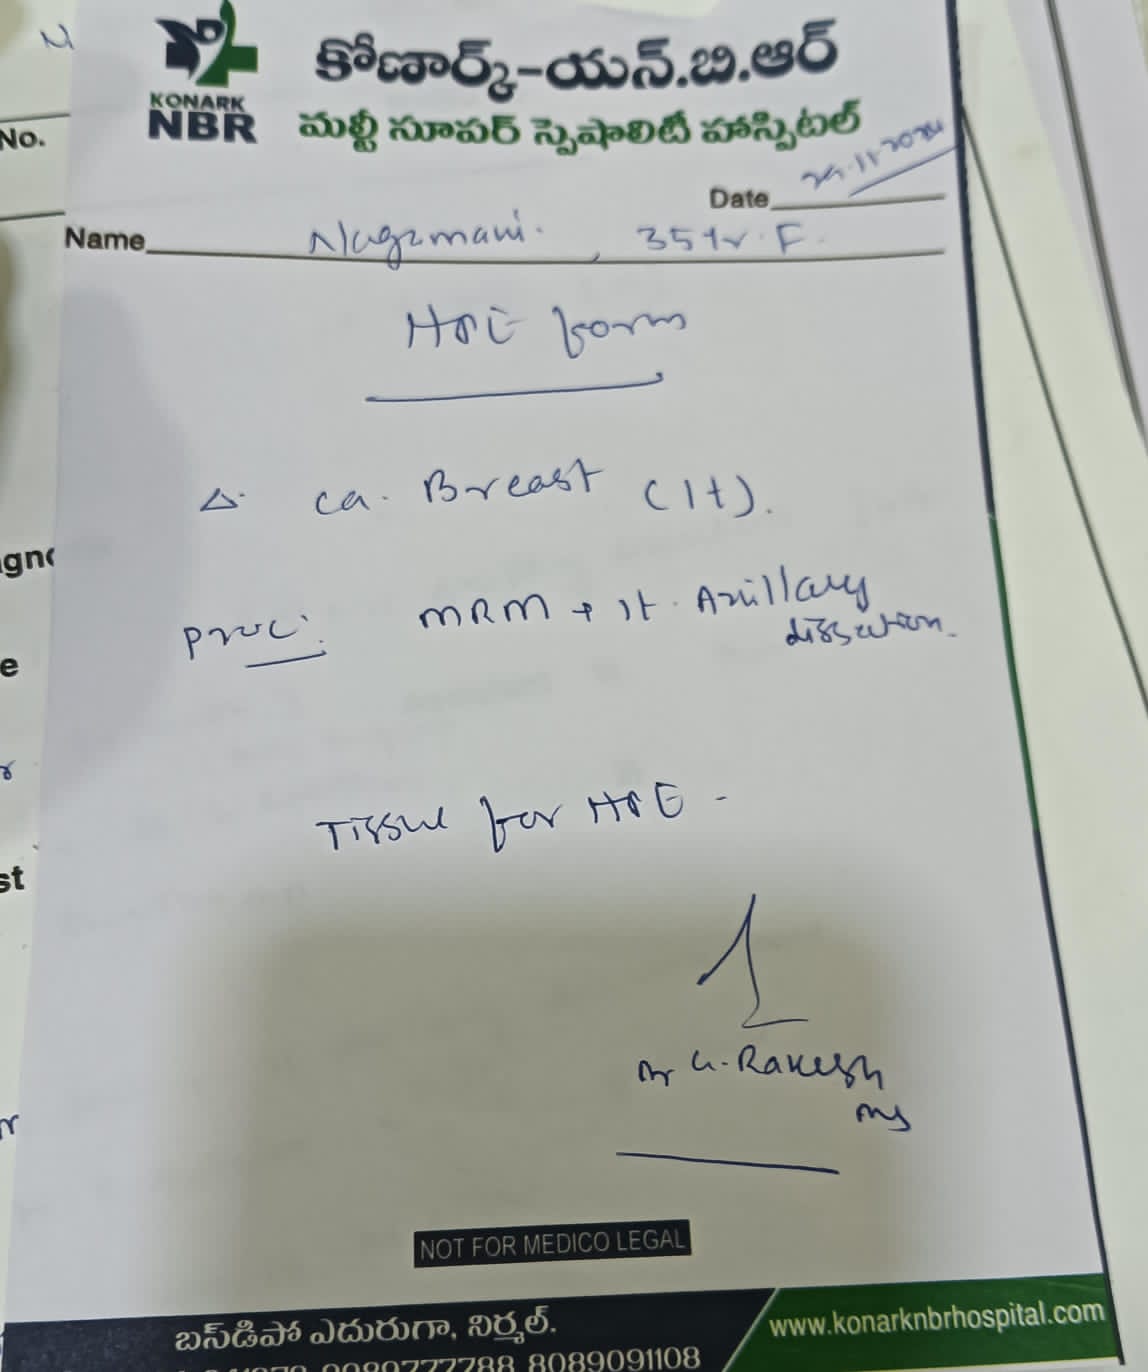 N
కోణార్క్-యన్.బి.ఆర్
KONARK
NBR
మల్టీ సూపర్ స్పెషాలిటీ హాస్పిటల్
No.
Date 29.11.2024
Name Nagamani. , 35 yr. F.
HPE form
Δ. ca. Breast (lt).
Proc: MRM + lt. Axillary
dissection.
Tissue for HPE -
Dr G. Rakesh
MS
NOT FOR MEDICO LEGAL
బస్‌డిపో ఎదురుగా, నిర్మల్.
www.konarknbrhospital.com
8089091108